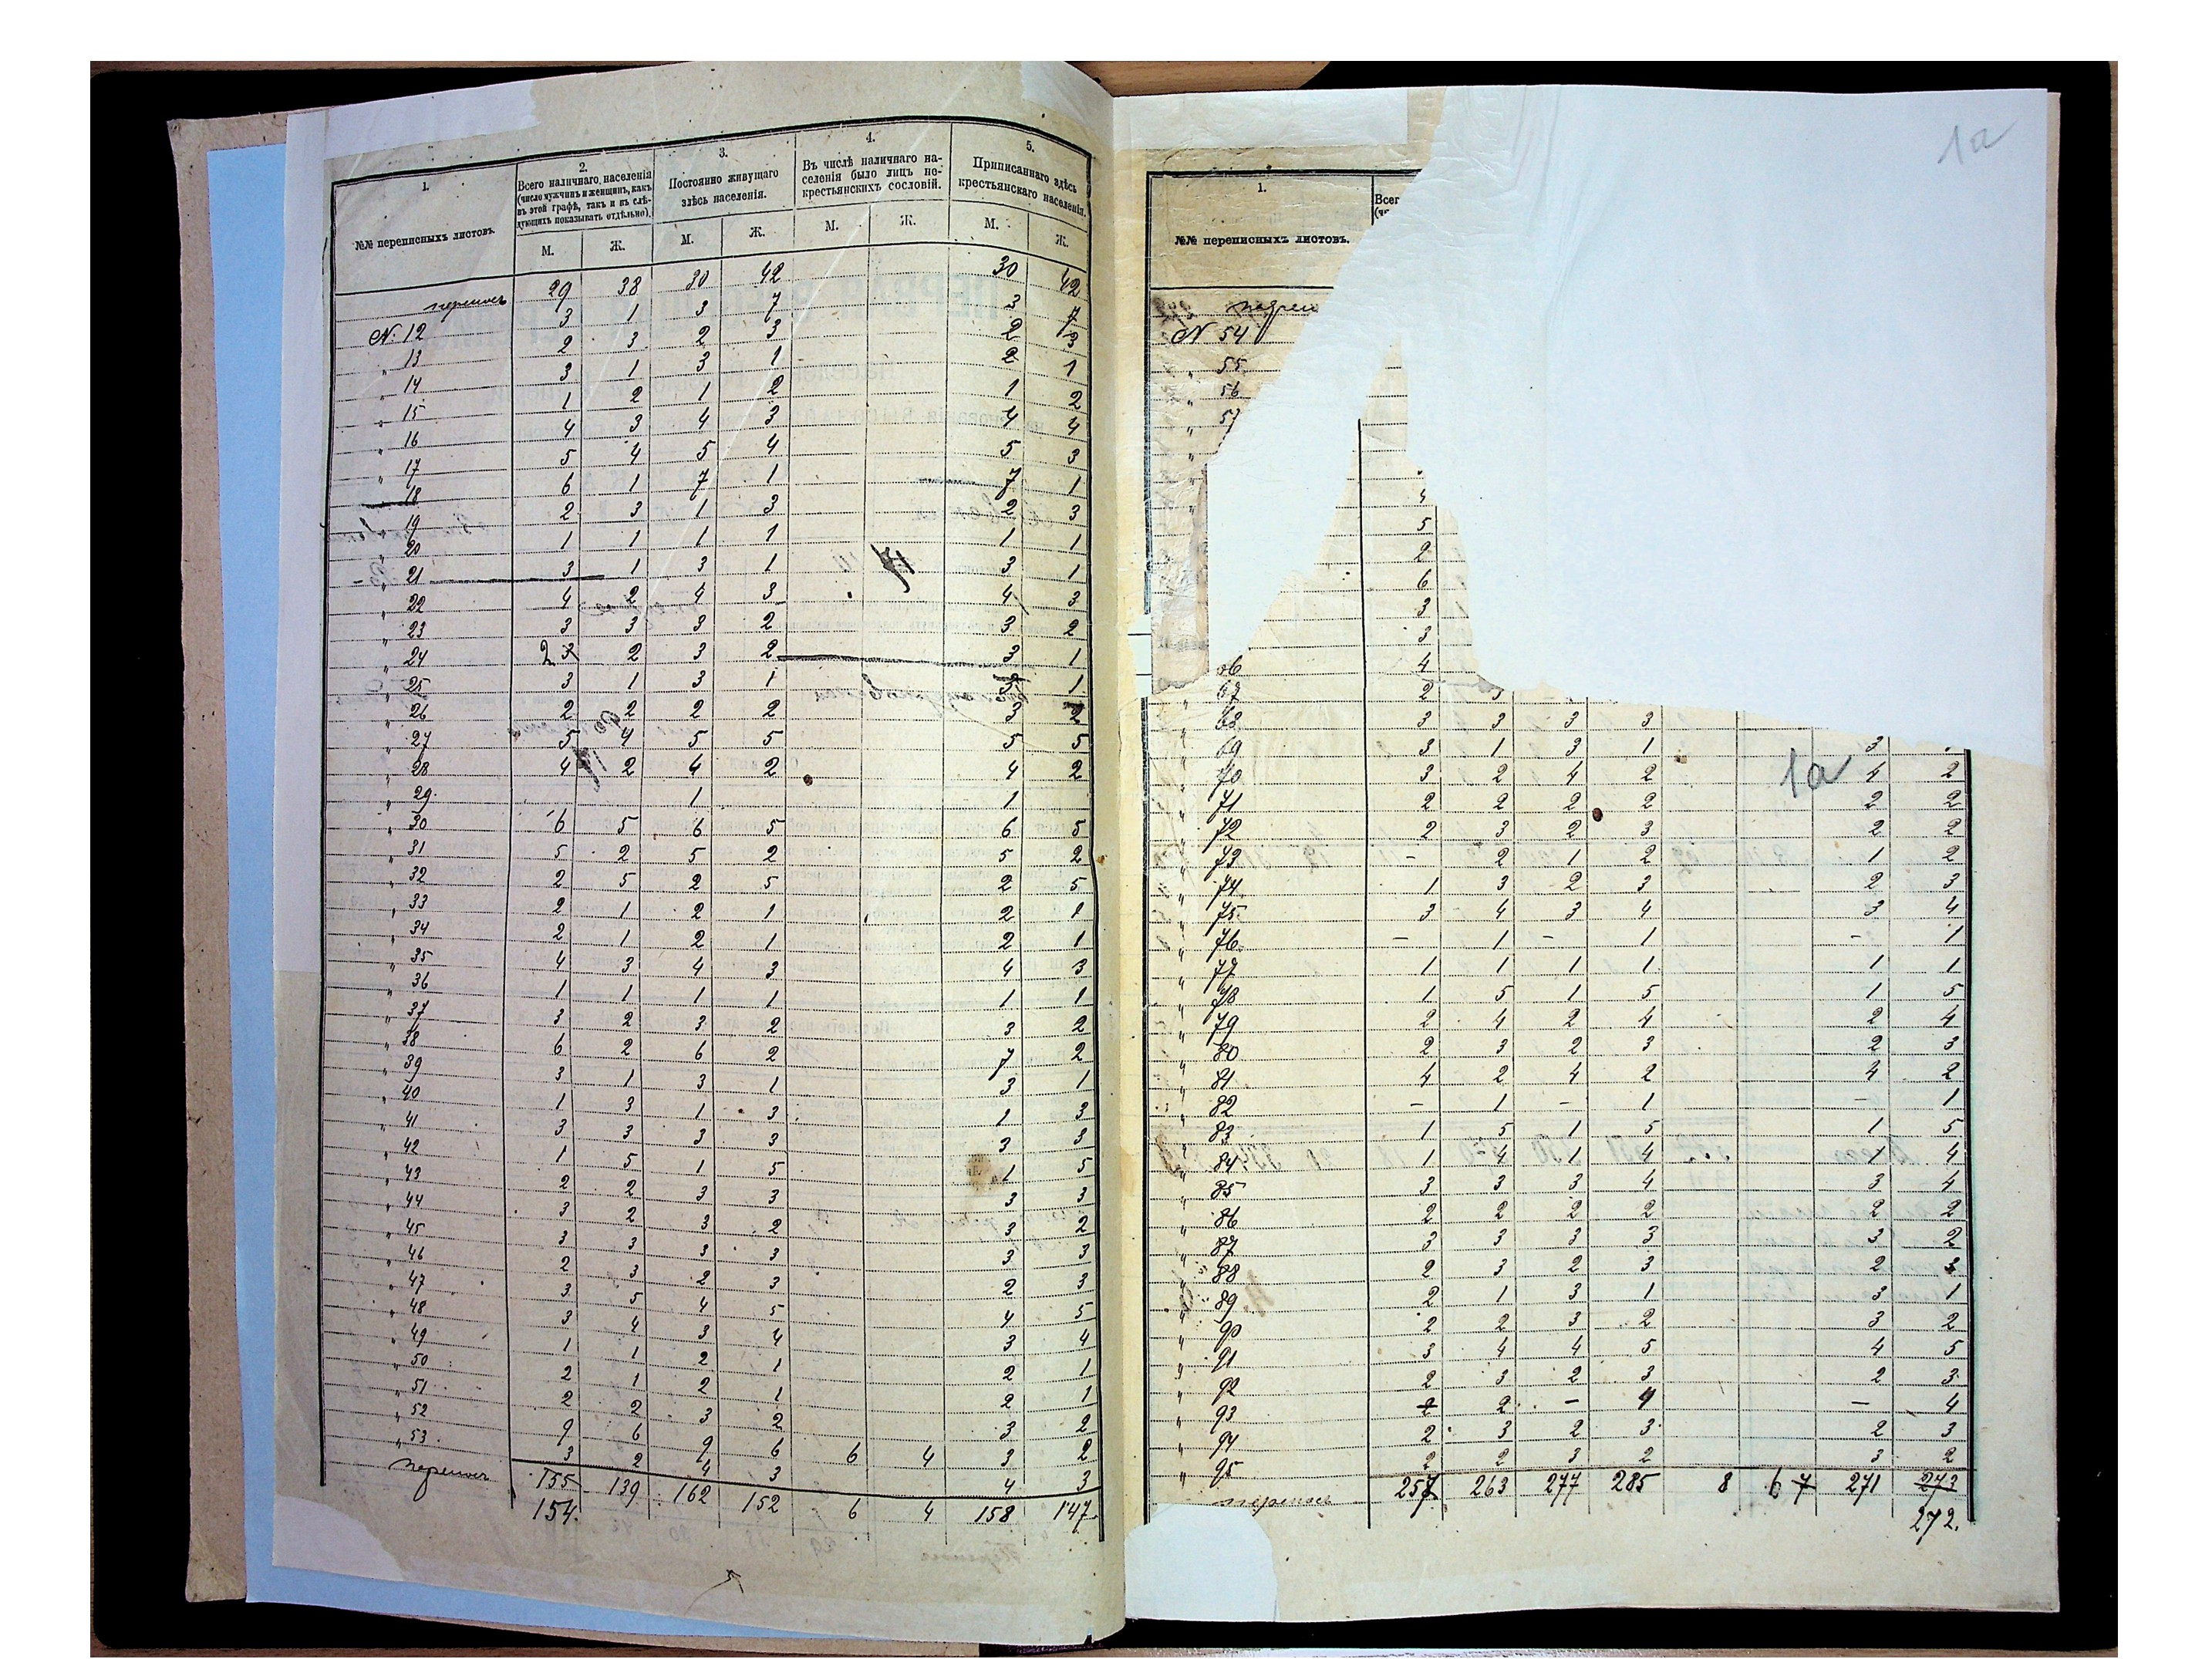 1.
2.
3.
4.
5.
№№ переписныхъ листовъ.
Всего наличнаго населенія
(число мужчинъ и женщинъ, какъ
въ этой графѣ, такъ и въ слѣ-
дующихъ показывать отдѣльно).
Постоянно живущаго
здѣсь населенія.
Въ числѣ наличнаго на-
селенія было лицъ не-
крестьянскихъ сословій.
Приписаннаго здѣсь
крестьянскаго населенія.
М. Ж. М. Ж. М. Ж. М. Ж.
перенос 29 38 30 42 30 42
N: 12 3 1 3 7 3 7
" 13 2 3 2 3 2 3
" 14 3 1 3 1 2 1
" 15 1 2 1 2 1 2
" 16 4 3 4 3 4 4
" 17 5 4 5 4 5 3
18 6 1 7 1 7 1
" 19 2 3 1 3 2 3
" 20 1 1 1 1 1 1
" 21 3 1 3 1 3 1
" 22 4 2 4 3 4 3
" 23 3 3 3 2 3 2
" 24 2 3 2 3 2 3 1
" 25 3 1 3 1 3 1
" 26 2 2 2 2 3 2
" 27 5 4 5 5 5 5
" 28 4 2 4 2 4 2
" 29 1 1
" 30 6 5 6 5 6 5
" 31 5 2 5 2 5 2
" 32 2 5 2 5 2 5
" 33 2 1 2 1 2 1
" 34 2 1 2 1 2 1
" 35 4 3 4 3 4 3
" 36 1 1 1 1 1 1
" 37 3 2 3 2 3 2
" 38 6 2 6 2 7 2
" 39 3 1 3 1 3 1
" 40 1 3 1 3 1 3
" 41 3 3 3 3 3 3
" 42 1 5 1 5 1 5
" 43 2 2 3 3 3 3
" 44 3 2 3 2 3 2
" 45 3 3 3 3 3 3
" 46 2 3 2 3 2 3
" 47 3 5 4 5 4 5
" 48 3 4 3 4 3 4
" 49 1 1 2 1 2 1
" 50 2 1 2 1 2 1
" 51 2 2 3 2 3 2
" 52 9 6 9 6 6 4 3 2
" 53 3 2 4 3 4 3
перенос 155 139 162 152 6 4 158 147
154.
1а
1.
Всег
№№ переписныхъ листовъ.
N 54
" 55
" 56
" 57
5
2
6
3
3
4
" 67 2
" 68 3 3 3 3
" 69 3 1 3 1 3
" 70 3 2 4 2 1а 4 2
" 71 2 2 2 2 2 2
" 72 2 3 2 3 2 2
" 73 - 2 1 2 1 2
" 74 1 3 2 3 2 3
" 75 3 4 3 4 3 4
" 76 - 1 - 1 - 1
" 77 1 1 1 1 1 1
" 78 1 5 1 5 1 5
" 79 2 4 2 4 2 4
" 80 2 3 2 3 2 3
" 81 4 2 4 2 4 2
" 82 - 1 - 1 - 1
" 83 1 5 1 5 1 5
" 84 1 4 1 4 1 4
" 85 3 3 3 4 3 4
" 86 2 2 2 2 2 2
" 87 3 3 3 3 3 2
" 88 2 3 2 3 2 3
" 89 2 1 3 1 3 1
" 90 2 2 3 2 3 2
" 91 3 4 4 5 4 5
" 92 2 3 2 3 2 3
" 93 2 2 - 4 - 4
" 94 2 3 2 3 2 3
" 95 2 2 3 2 3 2
перенос 257 263 277 285 8 6 7 271 273
272.